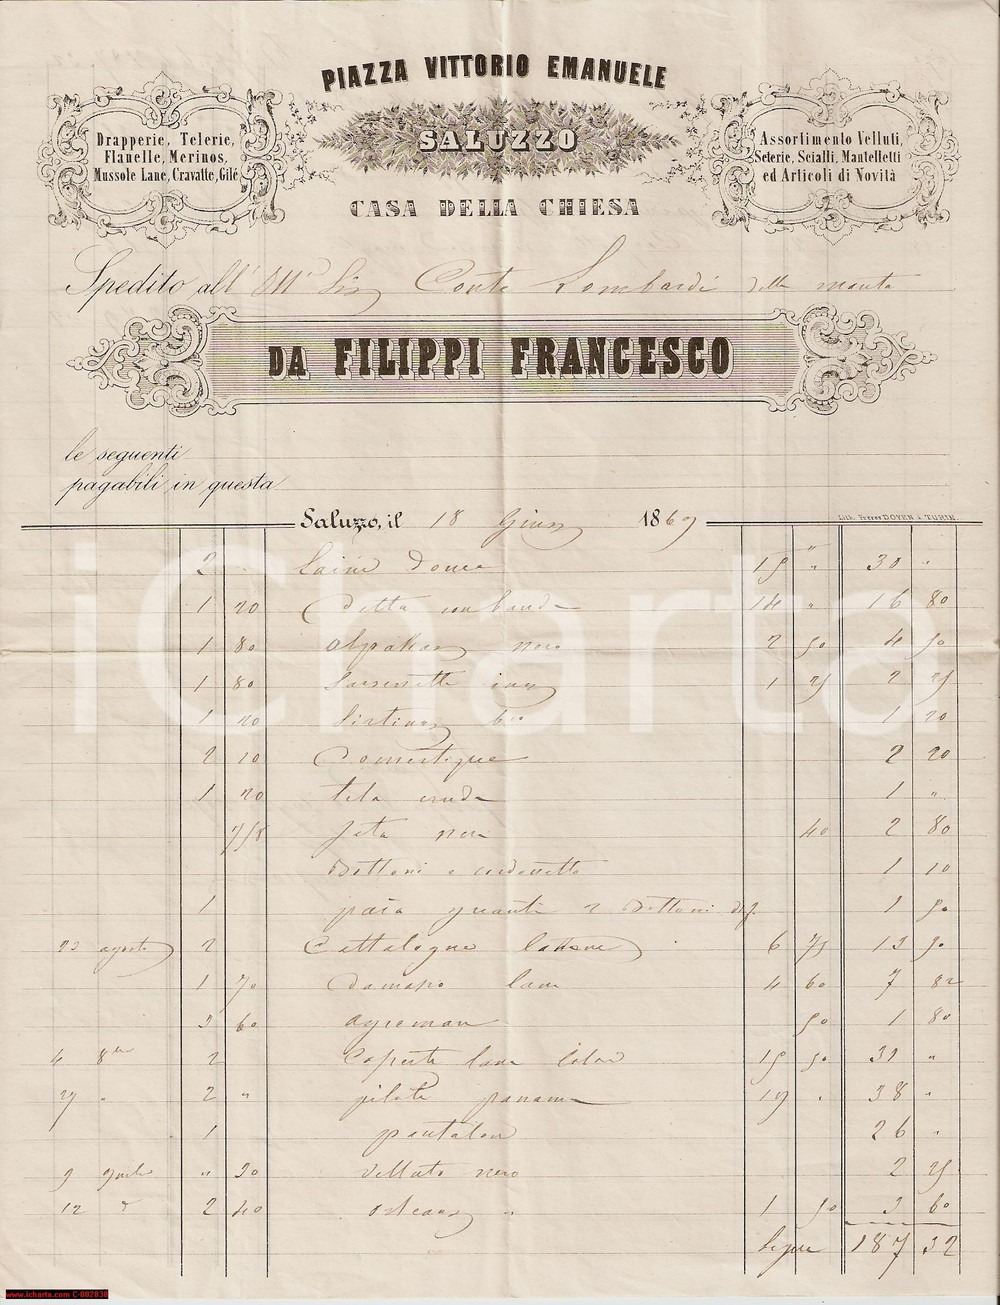 PIAZZA VITTORIO EMANUELE
SALUZZO
CASA DELLA CHIESA
Drapperie, Telerie,
Flanelle, Merinos,
Mussole Lane, Cravatte, Gilé
Assortimento Velluti,
Seterie, Scialli, Mantelletti
ed Articoli di Novità
Spedito all' Ill' Sig Conte Lombardi della manta
DA FILIPPI FRANCESCO
le seguenti
pagabili in questa
Saluzzo, il 18 Giug 1869
Lith. Frères DOYEN à TURIN.
2 " 15 " 30 "
1 20 Detta con banda 14 " 16 80
1 80 alpakas nero 2 50 4 50
1 80 1 25 2 25
1 20 1 20
2 10 Domestique 2 20
1 20 tela cruda 1 "
7/8 seta nera 40 2 80
Bottoni e cordonetto 1 10
1 paia guanti 2 Bottoni 1 50
23 agosto 2 Cattalogne 6 75 13 50
1 70 Damasco lana 4 60 7 82
3 60 agreman 50 1 80
4 8bre 2 Coperte lana 15 50 31 "
27 " 2 " panama 19 " 38 "
1 pantalon 26 "
9 " 30 Velluto nero 2 25
12 " 2 40 orleans " 1 50 3 60
Segue 187 32
iCharta
www.icharta.com C-002030